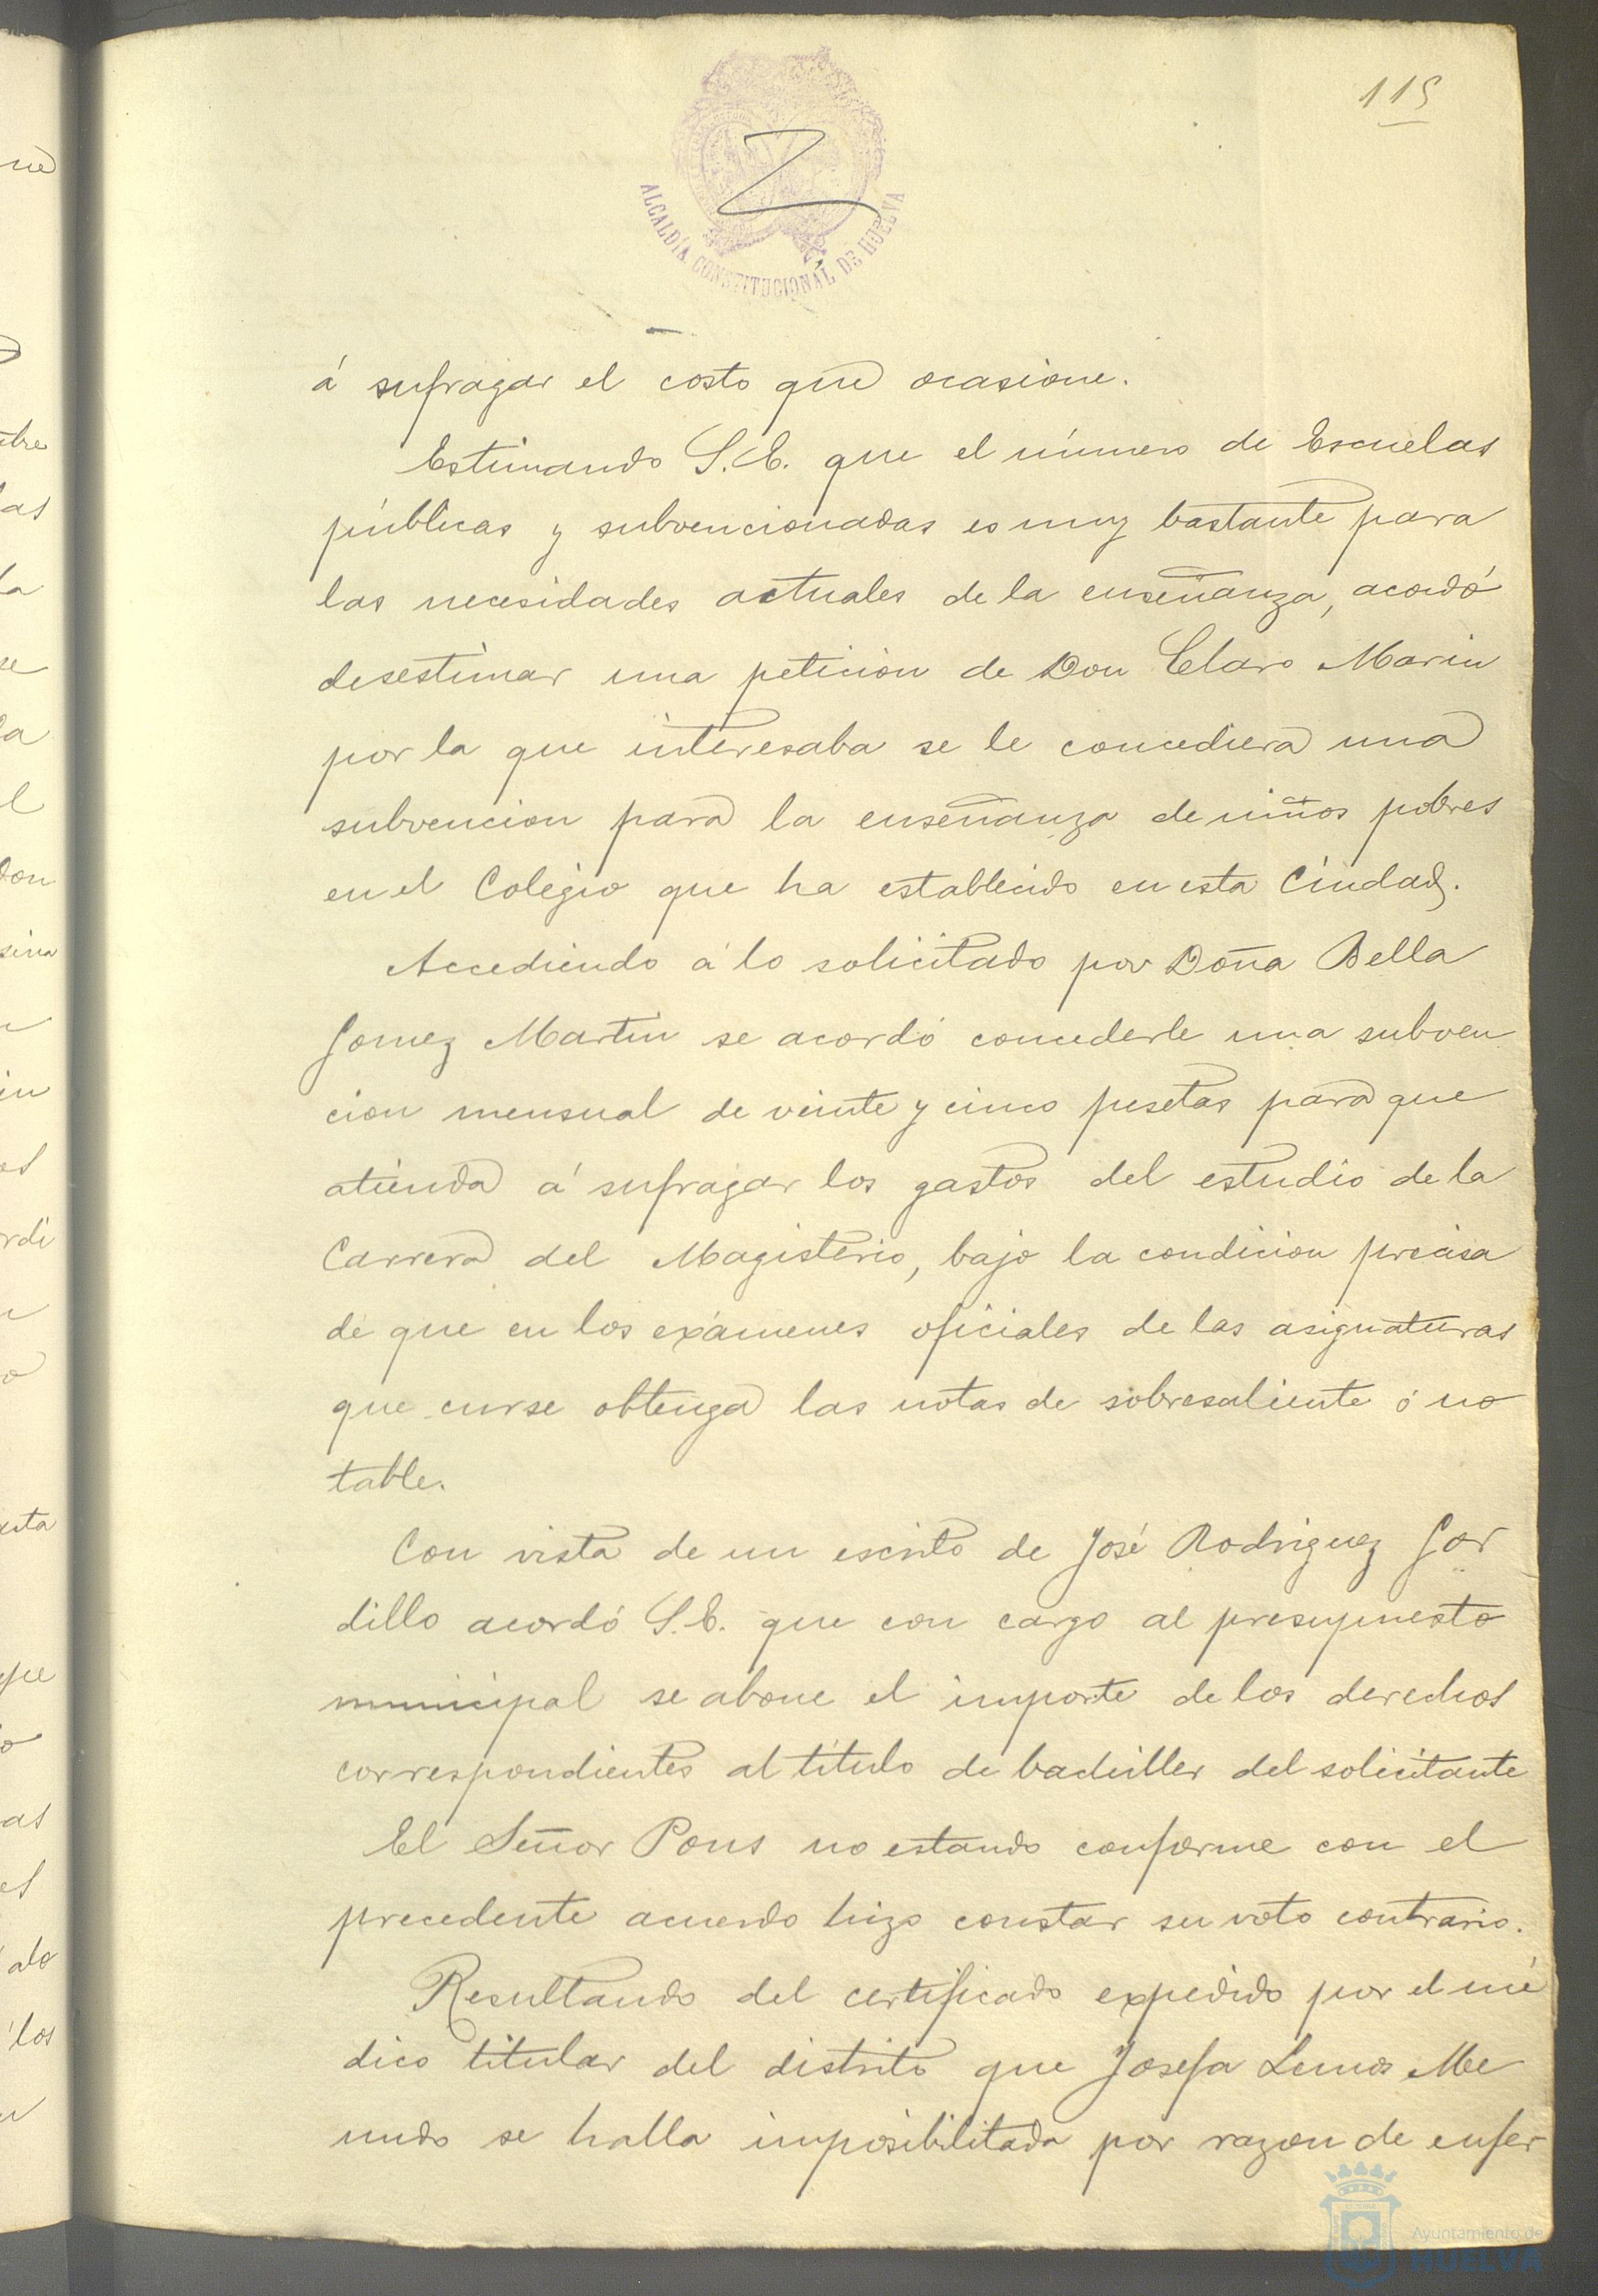 115
ALCALDÍA CONSTITUCIONAL DE HUELVA
á sufragar el costo que ocasione.
Estimando S.E. que el número de Escuelas
públicas y subvencionadas es muy bastante para
las necesidades actuales de la enseñanza, acordó
desestimar una peticion de Don Claro Marin
por la que interesaba se le concediera una
subvencion para la enseñanza de niños pobres
en el Colegio que ha establecido en esta Ciudad.
Accediendo á lo solicitado por Doña Bella
Gomez Martin se acordó concederle una subven
cion mensual de veinte y cinco pesetas para que
atienda á sufragar los gastos del estudio de la
Carrera del Magisterio, bajo la condicion precisa
de que en los exámenes oficiales de las asignaturas
que curse obtenga las notas de sobresaliente ó no
table.
Con vista de un escrito de José Rodriguez Gor
dillo acordó S.E. que con cargo al presupuesto
municipal se abone el importe de los derechos
correspondientes al título de bachiller del solicitante
El Señor Pons no estando conforme con el
precedente acuerdo hizo constar su voto contrario.
Resultando del certificado expedido por el mé
dico titular del distrito que Josefa Lemos Me
nudo se halla imposibilitada por razon de enfer
Ayuntamiento de
HUELVA